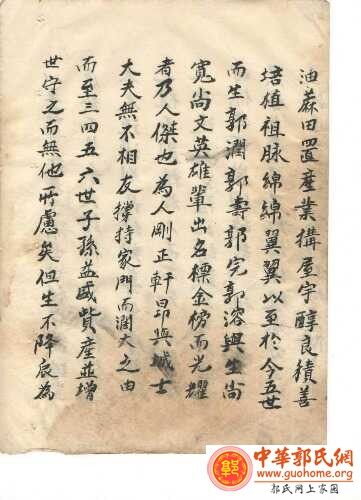 油蔴田置產業構屋宇醇良積善
培植祖脉綿綿翼翼以至於今五世
而生郭潤郭壽郭完郭溶與生尚
寬尚文英雄輩出名標金榜而光耀
者乃人傑也為人剛正軒昂與城士
大夫無不相友撐持家門而濶大之由
而至三四五六世子孫益盛貲產並增
世守之而無他所慮矣但生不降辰為
中華郭氏網
www.guohome.org
郭氏网上家园